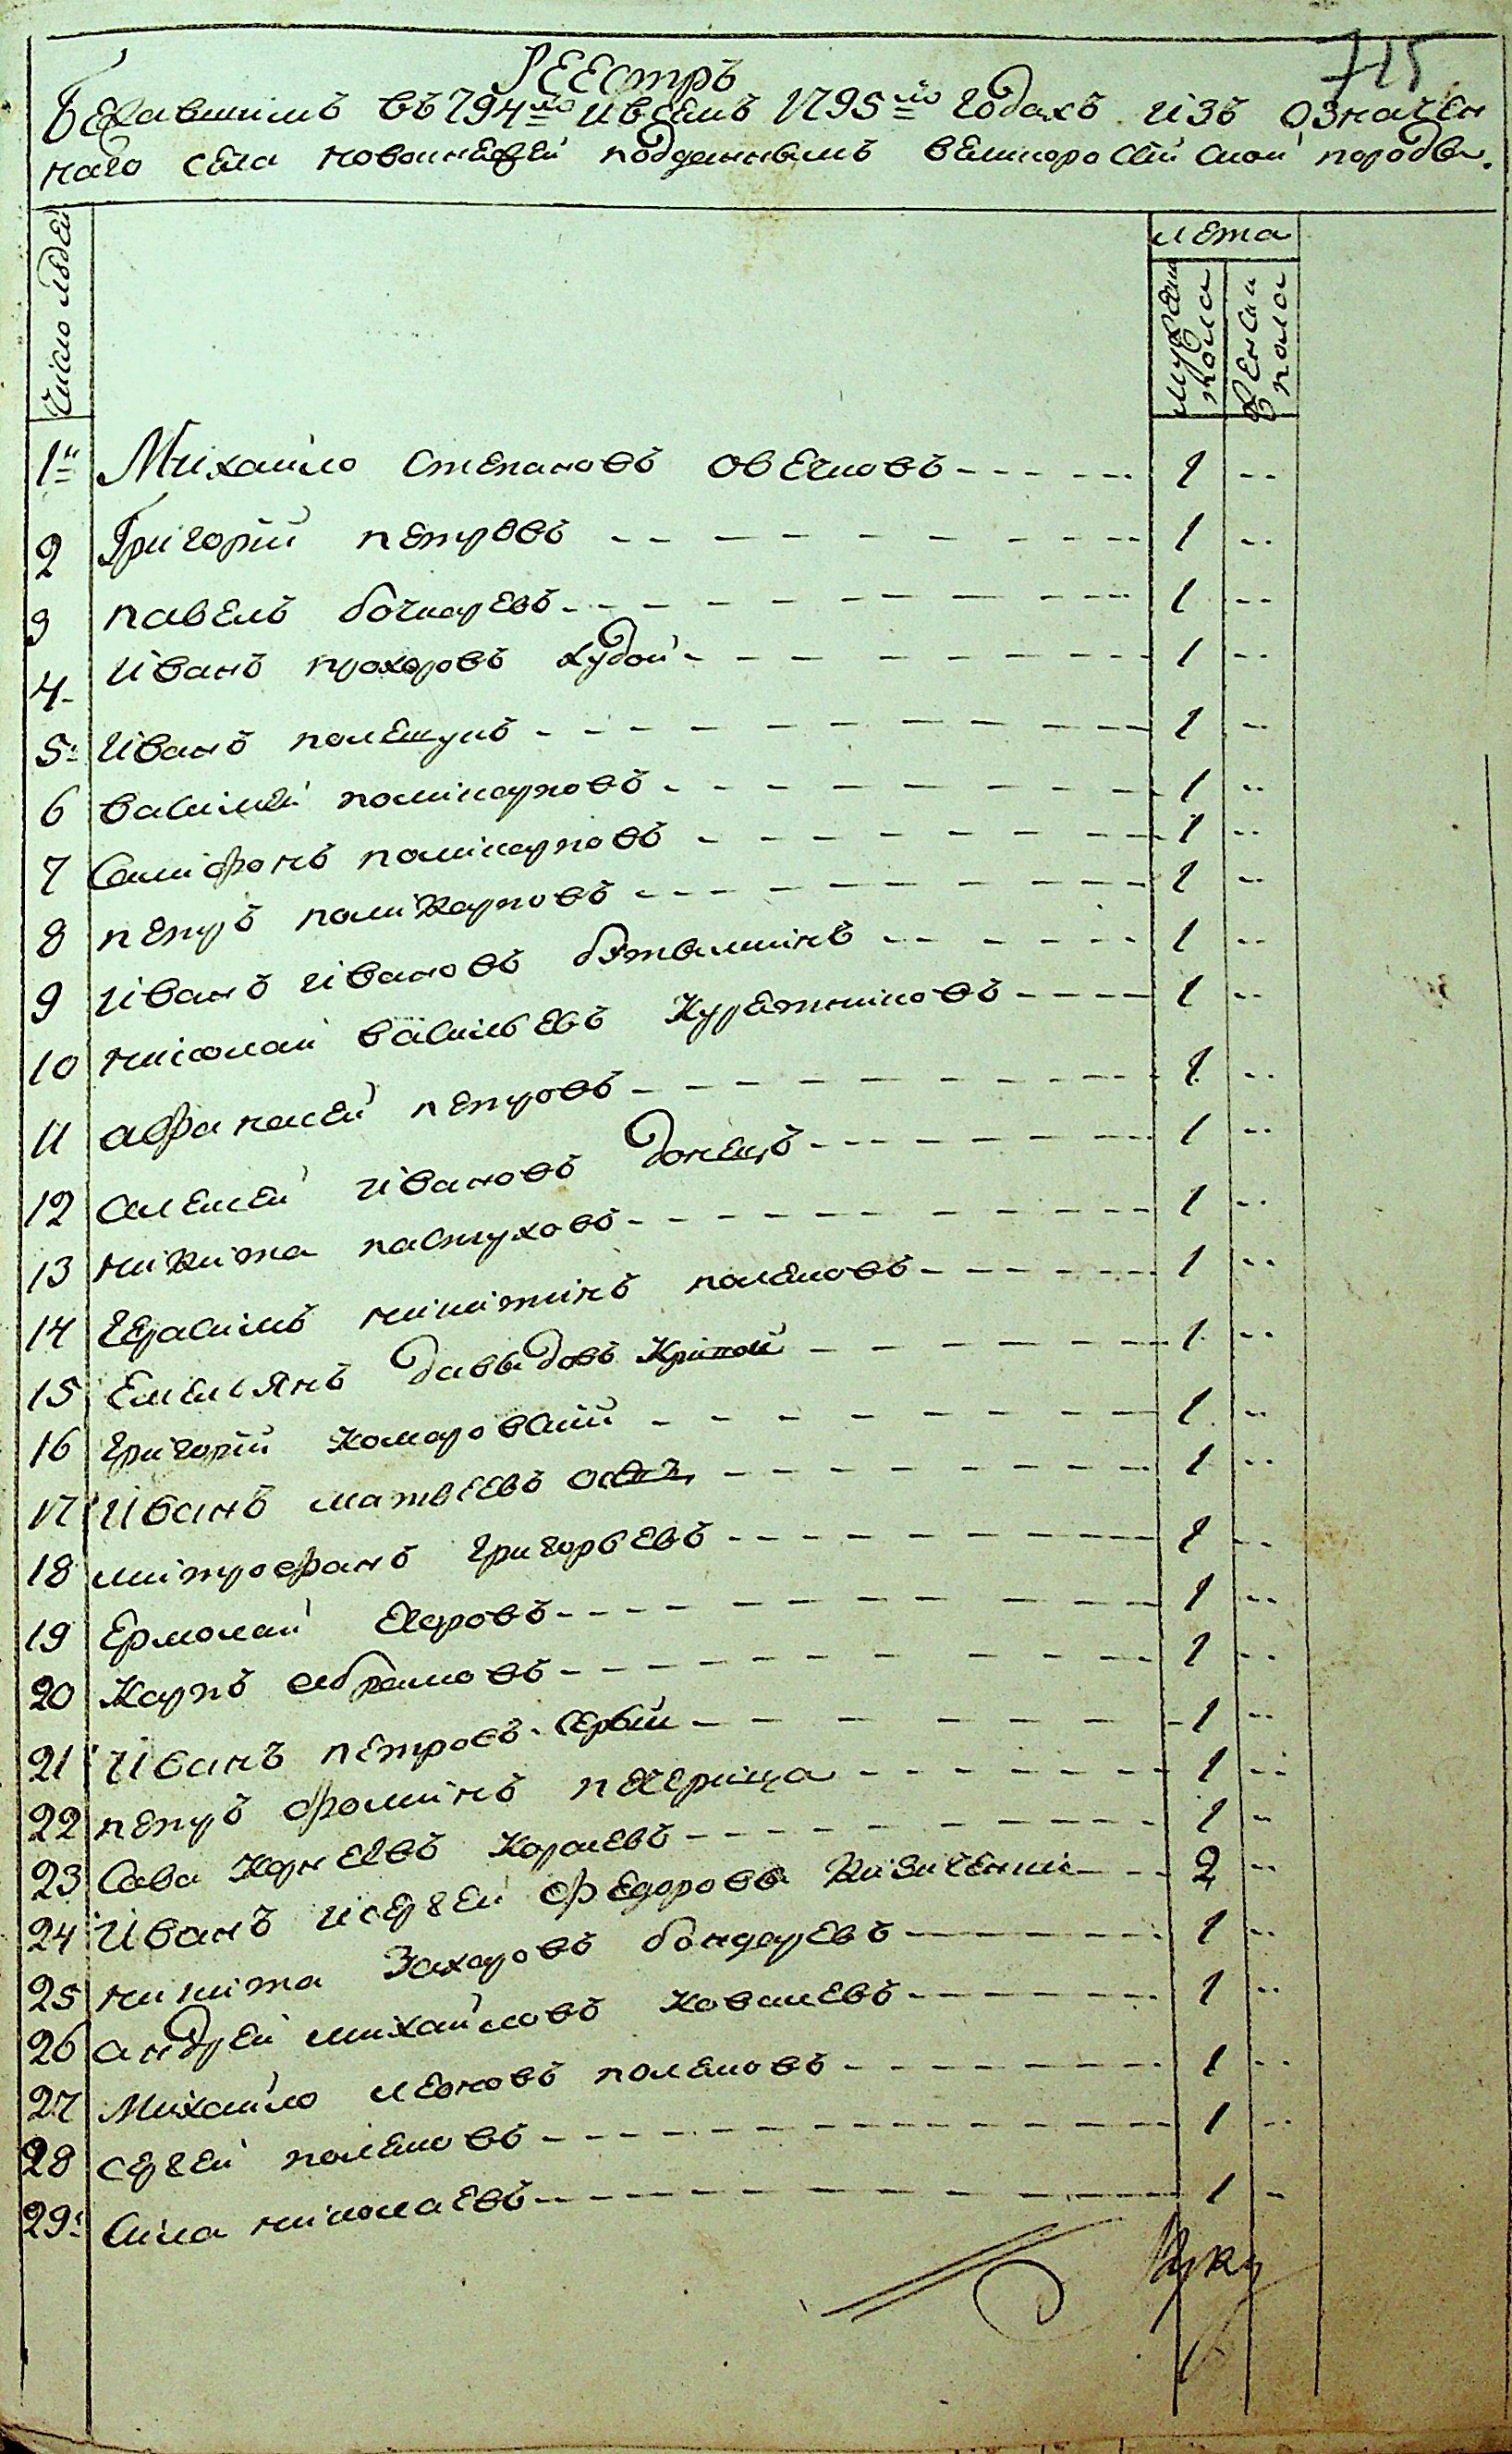 715
Реестръ
Бежавшимъ въ 794мъ и в семъ 1795мъ годахъ изъ означен
наго села подданнымъ великоросийской породы.
Число людей
лета
мужеска пола
женска пола
1й Михайло Степановъ овечковъ 1 --
2 Григорий петровъ 1 --
3 павелъ бочкаревъ 1 --
4 Иванъ прохоровъ худой 1 --
5 Иванъ полешукъ 1 --
6 василей поликарповъ 1 --
7 Селифонъ поликарповъ 1 --
8 петръ поликарповъ 1 --
9 иванъ ивановъ 1 --
10 николай васильевъ Курятниковъ 1 --
11 афанасей петровъ 1 --
12 алексей ивановъ донецъ 1 --
13 никита пастуховъ 1 --
14 герасимъ никитинъ полековъ 1 --
15 Емельянъ давыдовъ Кривой 1 --
16 григорий Комаровский 1 --
17 Иванъ матвеевъ 1 --
18 митрофанъ григорьевъ 1 --
19 Ермолай Егоровъ 1 --
20 Карпъ абрамовъ 1 --
21 Иванъ петровъ Сербин 1 --
22 петръ фоминъ печерица 1 --
23 Сава Корнеевъ Королевъ 1 --
24 Иванъ и сергей федоровы 2 --
25 никита Захаровъ бондаревъ 1 --
26 андрей михайловъ Ковалевъ 1 --
27 Михайло леоновъ полековъ 1 --
28 сергей полековъ 1 --
29 Сила николаевъ 1 --